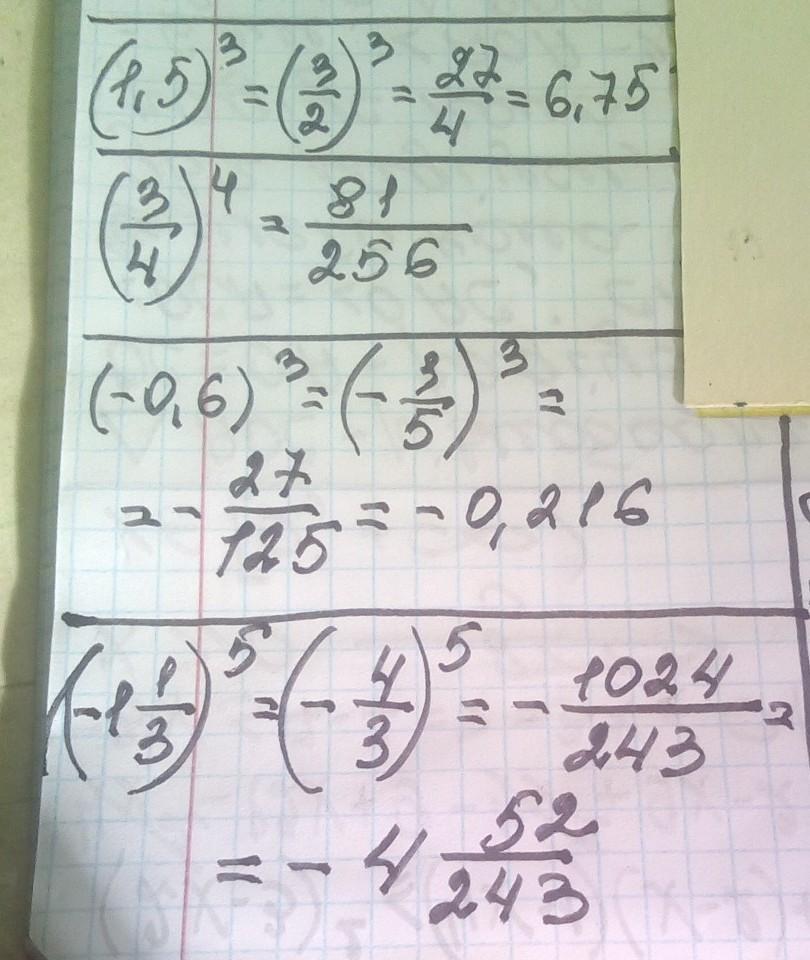 (1,5)³ = (3/2)³ = 27/4 = 6,75
(3/4)⁴ = 81/256
(-0,6)³ = (-3/5)³ =
= - 27/125 = - 0,216
(-1 1/3)⁵ = (- 4/3)⁵ = - 1024/243 =
= - 4 52/243